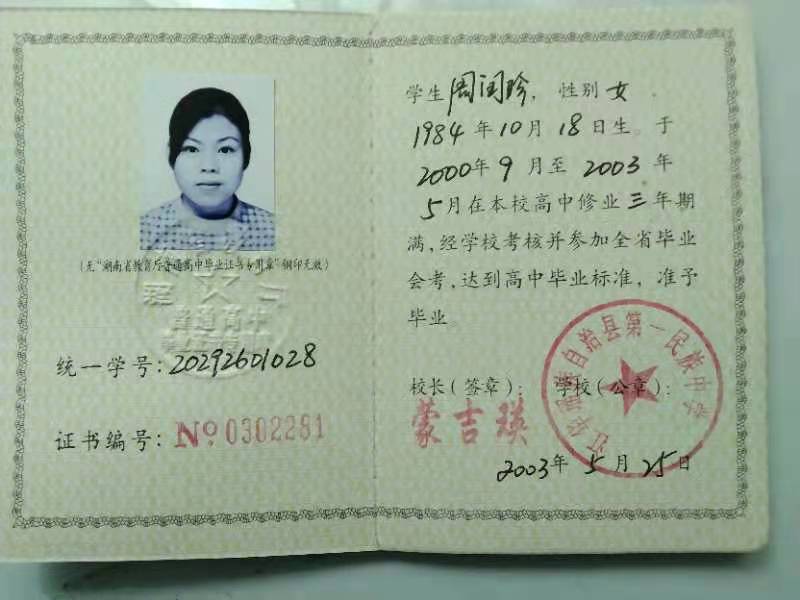 (无“湖南省教育厅普通高中毕业证书专用章”钢印无效)
普通高中
统一学号：20292601028
证书编号：No 0302281
学生周闰珍，性别女．
1984年10月18日生．于
2000年9月至2003年
5月在本校高中修业三年期
满，经学校考核并参加全省毕业
会考，达到高中毕业标准，准予
毕业。
校长(签章)：学校(公章)：
蒙吉瑛
江华瑶族自治县第一民族中学
2003年5月25日